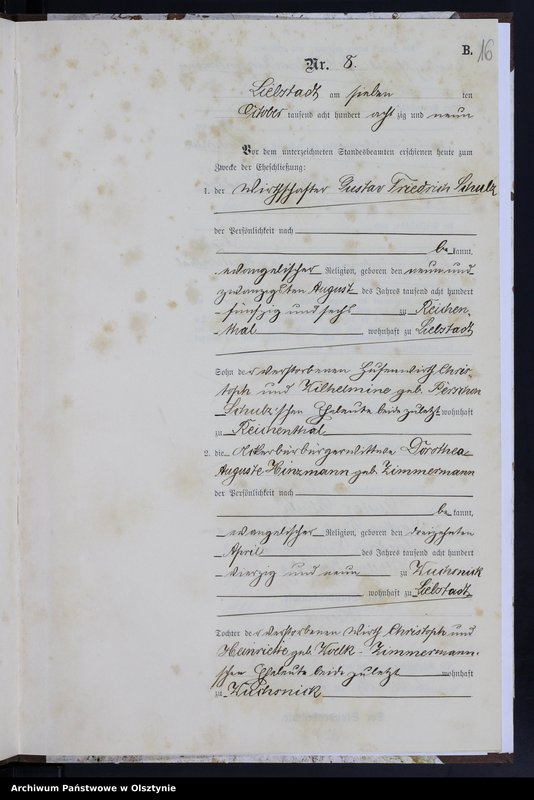 B. 16
Nr. 8.
Liebstadt am sieben ten
October tausend acht hundert acht zig und neun
Vor dem unterzeichneten Standesbeamten erschienen heute zum
Zwecke der Eheschließung:
1. der Wirthschafter Gustav Friedrich Schulz
der Persönlichkeit nach
be kannt,
evangelischer Religion, geboren den neun und
zwanzigsten August des Jahres tausend acht hundert
fünfzig und sechs zu Reichen
thal wohnhaft zu Liebstadt
Sohn der verstorbenen Hufenwirth Chris-
toph und Wilhelmine geb.
Schulz'schen Eheleute beide zuletzt wohnhaft
zu Reichenthal
2. die Ackerbürgerwittwe Dorothea
Auguste Hinzmann geb. Zimmermann
der Persönlichkeit nach
be kannt,
evangelischer Religion, geboren den dreizehnten
April des Jahres tausend acht hundert
vierzig und neun zu
wohnhaft zu Liebstadt
Tochter der verstorbenen Wirth Christoph und
Heinriette geb. Zimmermann-
schen Eheleute beide zuletzt wohnhaft
zu
Archiwum Państwowe w Olsztynie